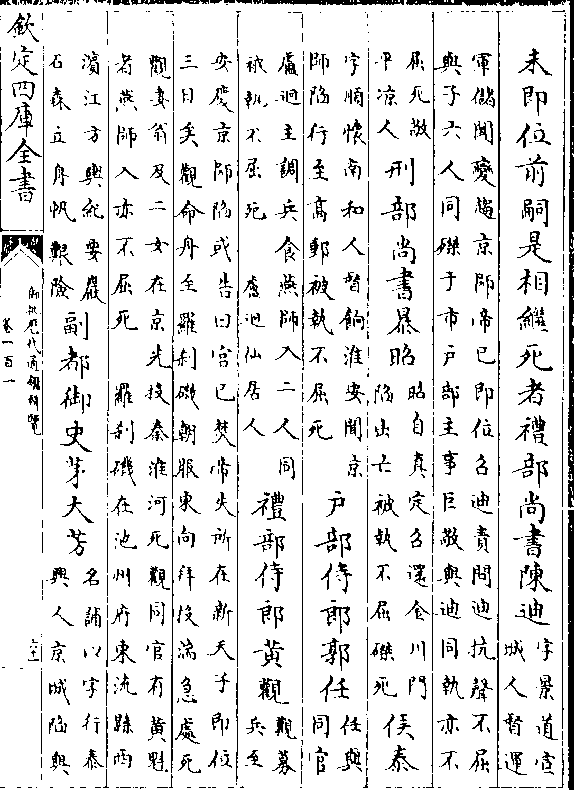 未即位前嗣是相繼死者禮部尚書陳迪
字景道宣
城人督運
軍儲聞變趨京師帝已即位召迪責問迪抗聲不屈
與子六人同磔于市戶部主事巨敬與迪同執亦不
屈死敬
平凉人
刑部尚書暴昭
昭自真定召還金川門
陷出亡被執不屈磔死
侯泰
字順懷南和人督餉淮安聞京
師陷行至高郵被執不屈死
戶部侍郎郭任
任與
同官
盧迥主調兵食燕師入二人同
被執不屈死 盧迥仙居人
禮部侍郎黃觀
觀募
兵至
安慶京師陷或告曰宮已焚帝失所在新天子即位
三日矣觀命舟至羅刹磯朝服東向拜投湍急處死
觀妻翁及二女在京先投秦淮河死觀同官有黃魁
者燕師入亦不屈死 羅刹磯在池州府東流縣西
濱江方輿紀要巖
石森立舟帆艱險
副都御史茅大芳
名誧以字行泰
興人京城陷與
欽定四庫全書
御批歷代通鑑輯覽
卷一百一